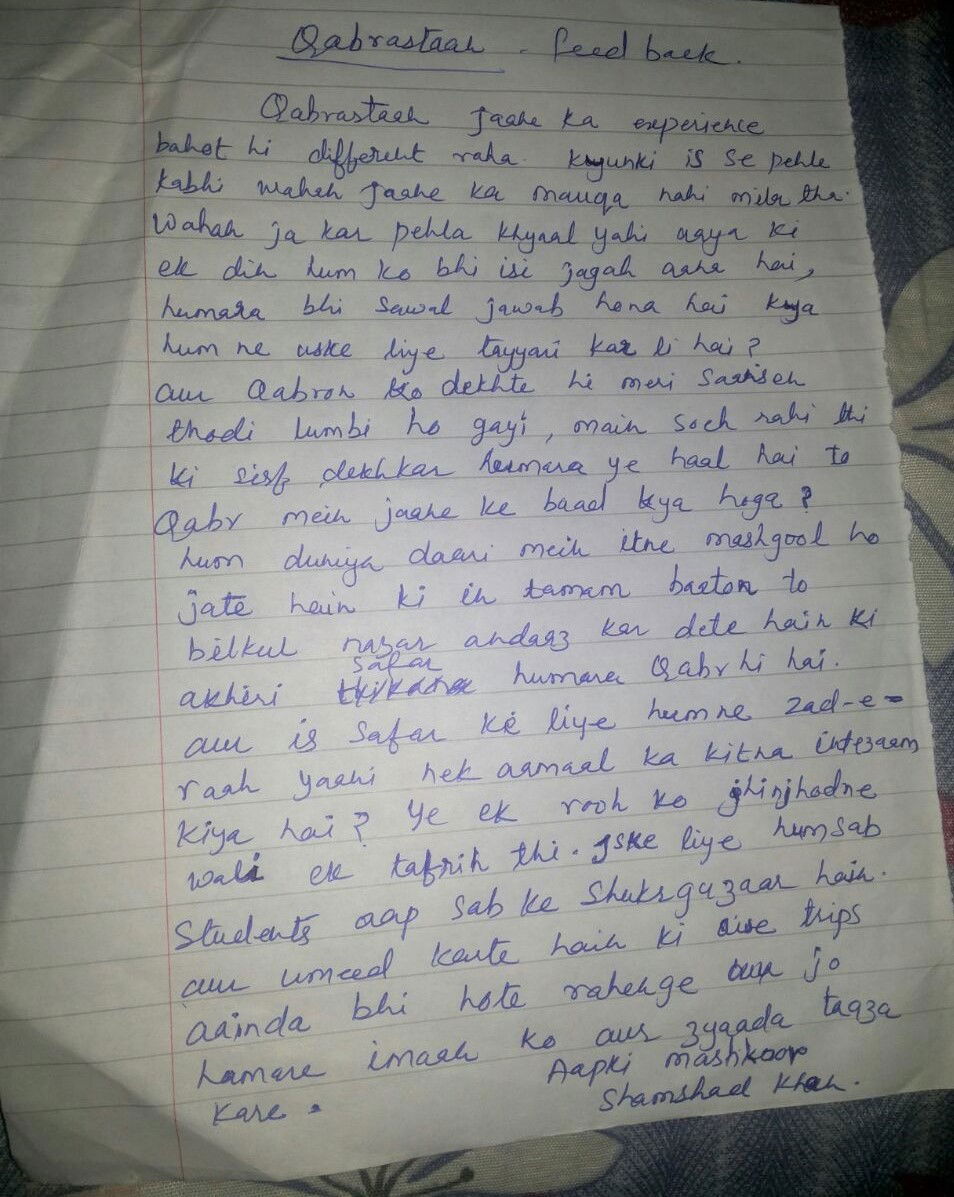 Qabrastaan - feed back.
Qabrastaan jaane ka experience
bahot hi different raha. kyunki is se pehle
kabhi wahan jaane ka mauqa nahi mila tha.
Wahan ja kar pehla khyaal yahi aaya ki
ek din hum ko bhi isi jagah aana hai,
humara bhi sawal jawab hona hai kya
hum ne uske liye tayyari kar li hai?
aur Qabron ko dekhte hi meri saansen
thodi lumbi ho gayi, main soch rahi thi
ki sirf dekhkar humara ye haal hai to
Qabr mein jaane ke baad kya hoga?
hum duniya daari mein itne mashgool ho
jate hain ki in tamam baaton to
bilkul nazar andaaz kar dete hain ki
akhiri safar humara Qabr hi hai.
aur is safar ke liye humne zad-e-
raah yaani nek aamaal ka kitna intezaam
kiya hai? Ye ek rooh ko jhinjhodne
wali ek tafrih thi. Iske liye hum sab
Students aap sab ke Shukrguzaar hain.
aur umeed karte hain ki aise trips
aainda bhi hote rahenge aur jo
hamare imaan ko aur zyaada taaza
kare.
Aapki mashkoor
Shamshad Khan.